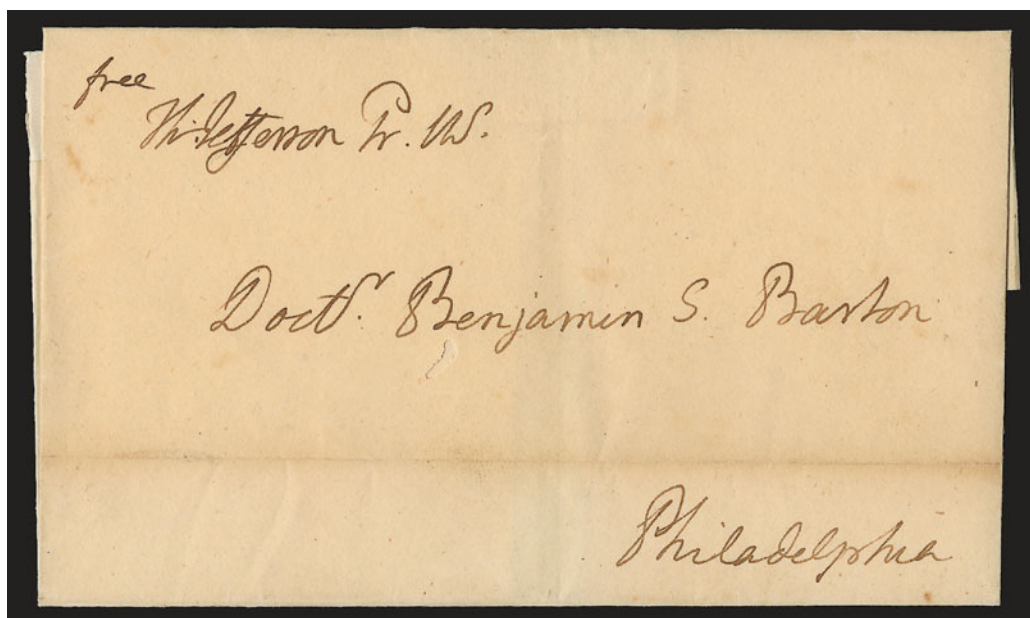 free
Th: Jefferson Pr. US.
Doctr. Benjamin S. Barton
Philadelphia